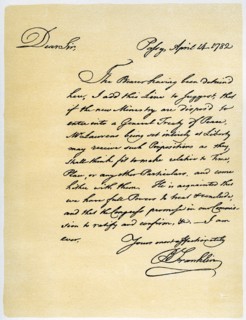 Dear Sir,
Passy, April 14. 1782
The Bearer having been detained
here, I add this Line to suggest, that
if the new Ministry are disposed to
enter into a General Treaty of Peace,
Mr Laurens being set intirely at Liberty
may receive such Propositions as they
shall think fit to make relative to Time,
Place, or any other Particulars, and come
hither with them. He is acquainted that
we have full Powers to treat & conclude,
and that the Congress promise in our Commis-
sion to ratify and confirm, &c. — I am
ever,
Yours most affectionately
B Franklin